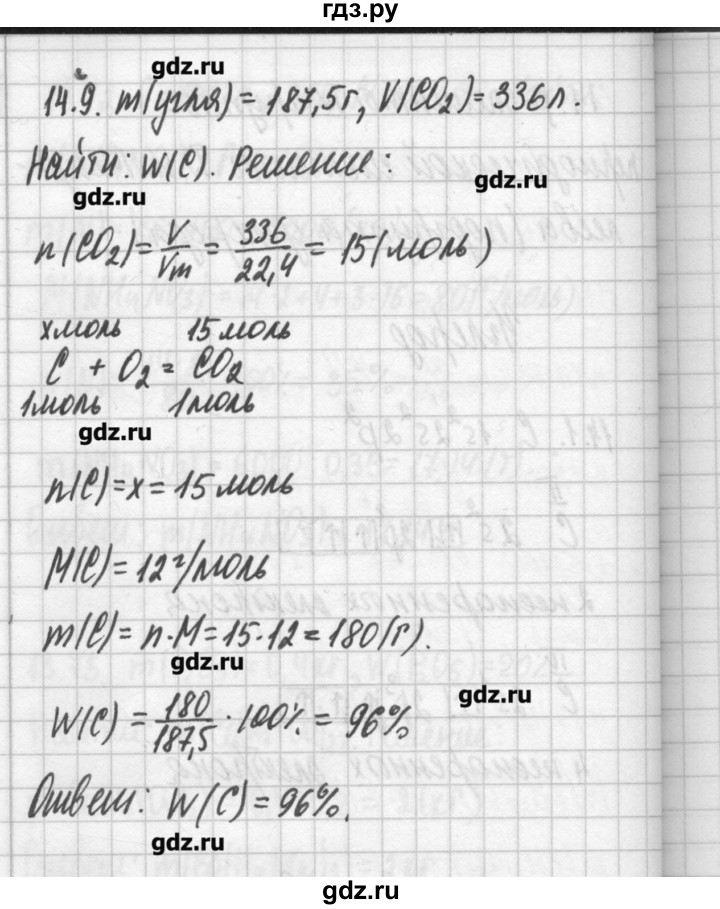 гдз.ру
gdz.ru
14.9. m(угля) = 187,5г, V(CO₂) = 336л.
Найти: W(C). Решение:
gdz.ru
gdz.ru
n(CO₂) = V/Vm = 336/22,4 = 15(моль)
xмоль 15 моль
C + O₂ = CO₂
1моль 1моль
gdz.ru
n(C) = x = 15 моль
M(C) = 12 г/моль
m(C) = n · M = 15 · 12 = 180(г).
gdz.ru
gdz.ru
W(C) = 180/187,5 · 100% = 96%
Ответ: W(C) = 96%.
gdz.ru
gdz.ru